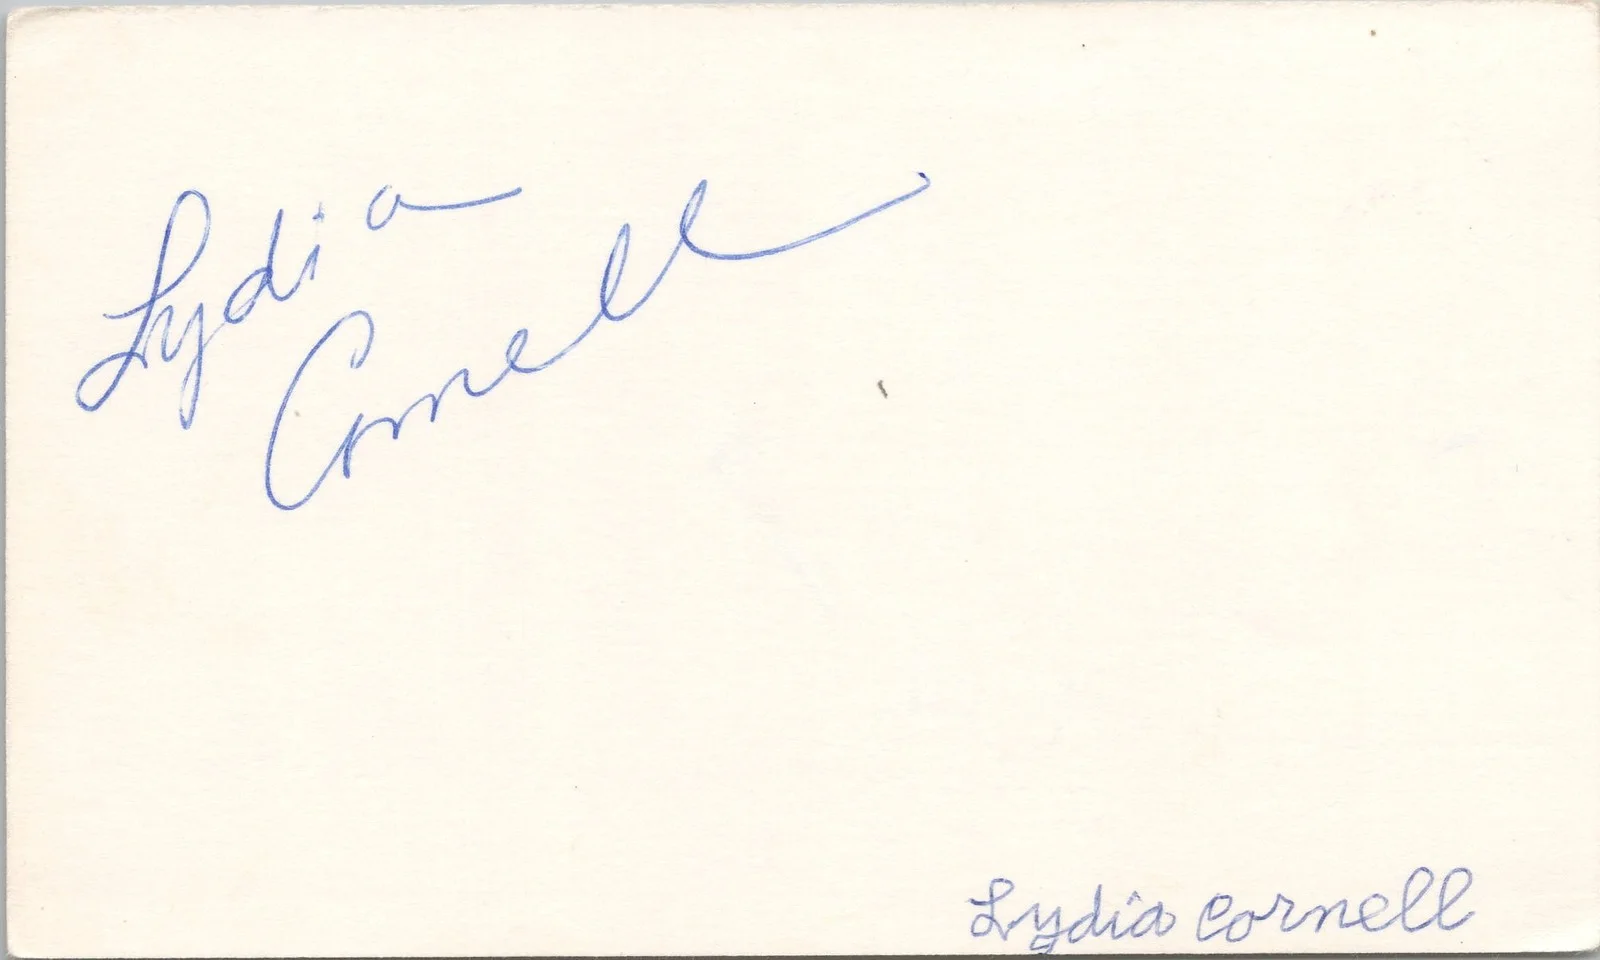 Lydia
Cornell
Lydia Cornell